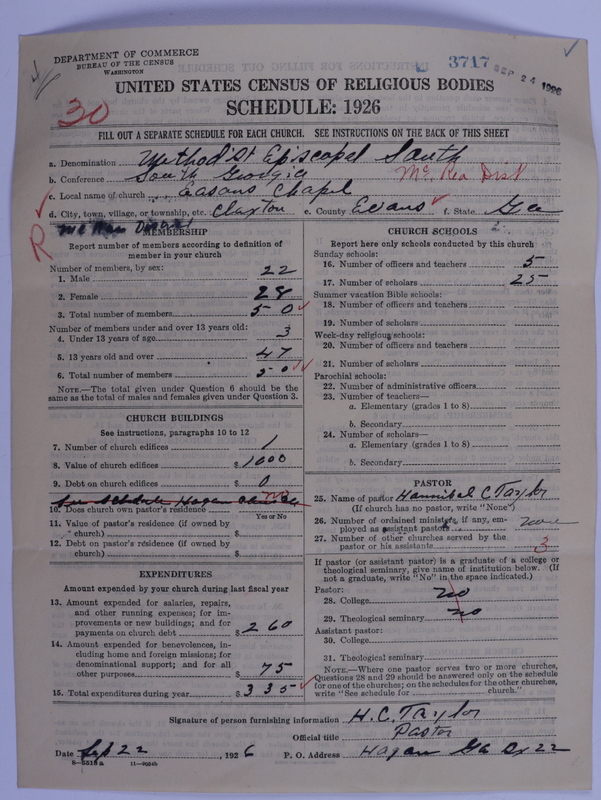 DEPARTMENT OF COMMERCE
BUREAU OF THE CENSUS
WASHINGTON
3717
SEP 24 1926
30
UNITED STATES CENSUS OF RELIGIOUS BODIES
SCHEDULE: 1926
FILL OUT A SEPARATE SCHEDULE FOR EACH CHURCH. SEE INSTRUCTIONS ON THE BACK OF THIS SHEET
a. Denomination Methodist Episcopal South
b. Conference South Georgia Mc Rea Dist
c. Local name of church Easons Chapel
d. City, town, village, or township, etc. Claxton e. County Evans f. State Ga
R
MEMBERSHIP
Report number of members according to definition of
member in your church
Number of members, by sex:
1. Male 22
2. Female 28
3. Total number of members 50
Number of members under and over 13 years old:
4. Under 13 years of age 3
5. 13 years old and over 47
6. Total number of members 50
NOTE.—The total given under Question 6 should be
the same as the total of males and females given under Question 3.
CHURCH BUILDINGS
See instructions, paragraphs 10 to 12
7. Number of church edifices 1
8. Value of church edifices $1000
9. Debt on church edifices $ 0
See Schedule Hagan Church
10. Does church own pastor's residence no
Yes or No
11. Value of pastor's residence (if owned by
church) $
12. Debt on pastor's residence (if owned by
church) $
EXPENDITURES
Amount expended by your church during last fiscal year
13. Amount expended for salaries, repairs,
and other running expenses; for im-
provements or new buildings; and for
payments on church debt $260
14. Amount expended for benevolences, in-
cluding home and foreign missions; for
denominational support; and for all
other purposes $ 75
15. Total expenditures during year $335
CHURCH SCHOOLS
Report here only schools conducted by this church
Sunday schools:
16. Number of officers and teachers 5
17. Number of scholars 25
Summer vacation Bible schools:
18. Number of officers and teachers
19. Number of scholars
Week-day religious schools:
20. Number of officers and teachers
21. Number of scholars
Parochial schools:
22. Number of administrative officers
23. Number of teachers—
a. Elementary (grades 1 to 8)
b. Secondary
24. Number of scholars—
a. Elementary (grades 1 to 8)
b. Secondary
PASTOR
25. Name of pastor Hannibal C Taylor
(If church has no pastor, write "None")
26. Number of ordained ministers, if any, em-
ployed as assistant pastors none
27. Number of other churches served by the
pastor or his assistants 3
If pastor (or assistant pastor) is a graduate of a college or
theological seminary, give name of institution below. (If
not a graduate, write "No" in the space indicated.)
Pastor:
28. College no
29. Theological seminary no
Assistant pastor:
30. College
31. Theological seminary
NOTE.—Where one pastor serves two or more churches,
Questions 28 and 29 should be answered only on the schedule
for one of the churches; on the schedules for the other churches,
write "See schedule for church."
Signature of person furnishing information H. C. Taylor
Official title Pastor
Date Sep 22, 1926 P. O. Address Hagan Ga Bx 22
8—5518a 11—9054b